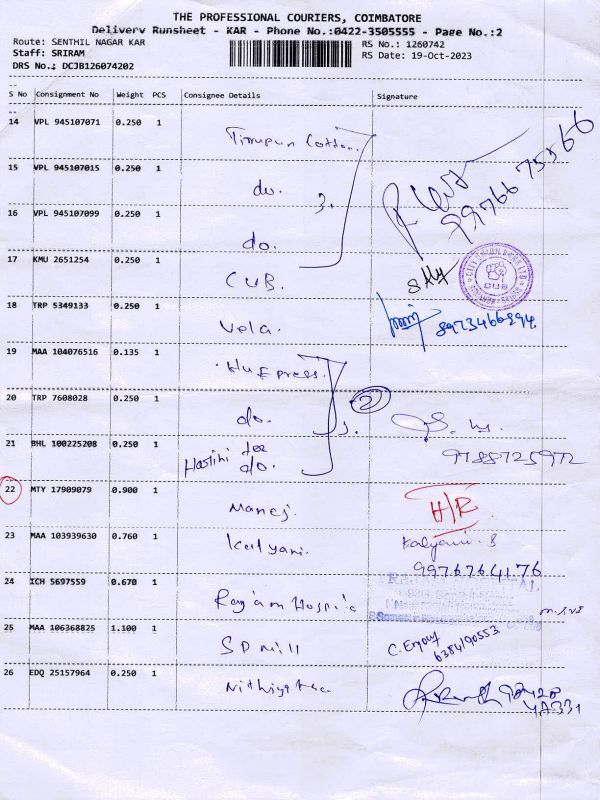 THE PROFESSIONAL COURIERS, COIMBATORE
Delivery Runsheet - KAR - Phone No.:0422-3505555 - Page No.:2
Route: SENTHIL NAGAR KAR RS No.: 1260742
Staff: SRIRAM RS Date: 19-Oct-2023
DRS No.: DCJB126074202
S No Consignment No Weight PCS Consignee Details Signature
14 VPL 945107071 0.250 1 Tirupur Cotton
15 VPL 945107015 0.250 1 do. 3. 9976675566
16 VPL 945107099 0.250 1 do.
17 KMU 2651254 0.250 1 CUB. CUB
18 TRP 5349133 0.250 1 Vela. 8973466894
19 MAA 104076516 0.135 1
20 TRP 7608028 0.250 1 do. 2
21 BHL 100225208 0.250 1 do. 9788725972
22 MTY 17909079 0.900 1 Manoj. H/R
23 MAA 103939630 0.760 1 Kalyani. Kalyani. S
9976764176
24 ICH 5697559 0.670 1
25 MAA 106368825 1.100 1 SP Mill 6384190553
26 EDQ 25157964 0.250 1